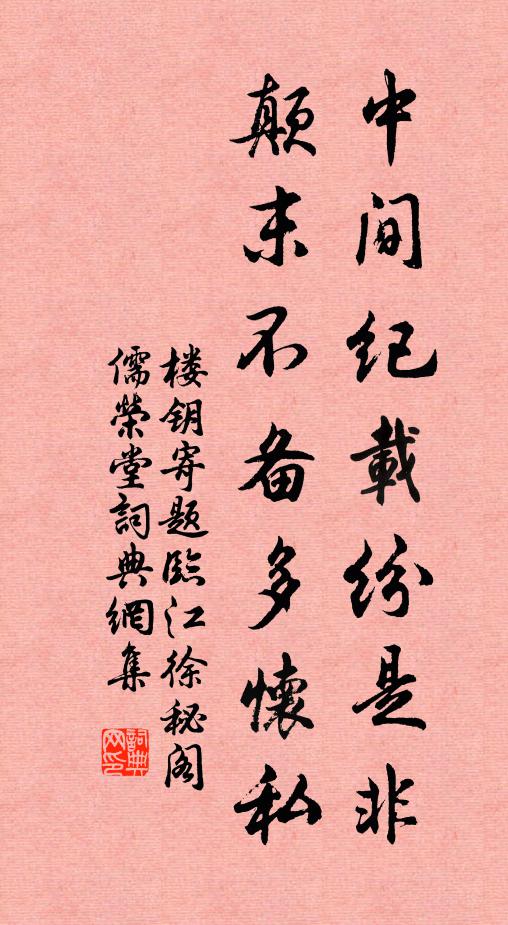 中间纪載纷是非
颠末不备多懷私
楼钥寄题臨江徐秘阁
儒榮堂詞典網集
詞典
网印